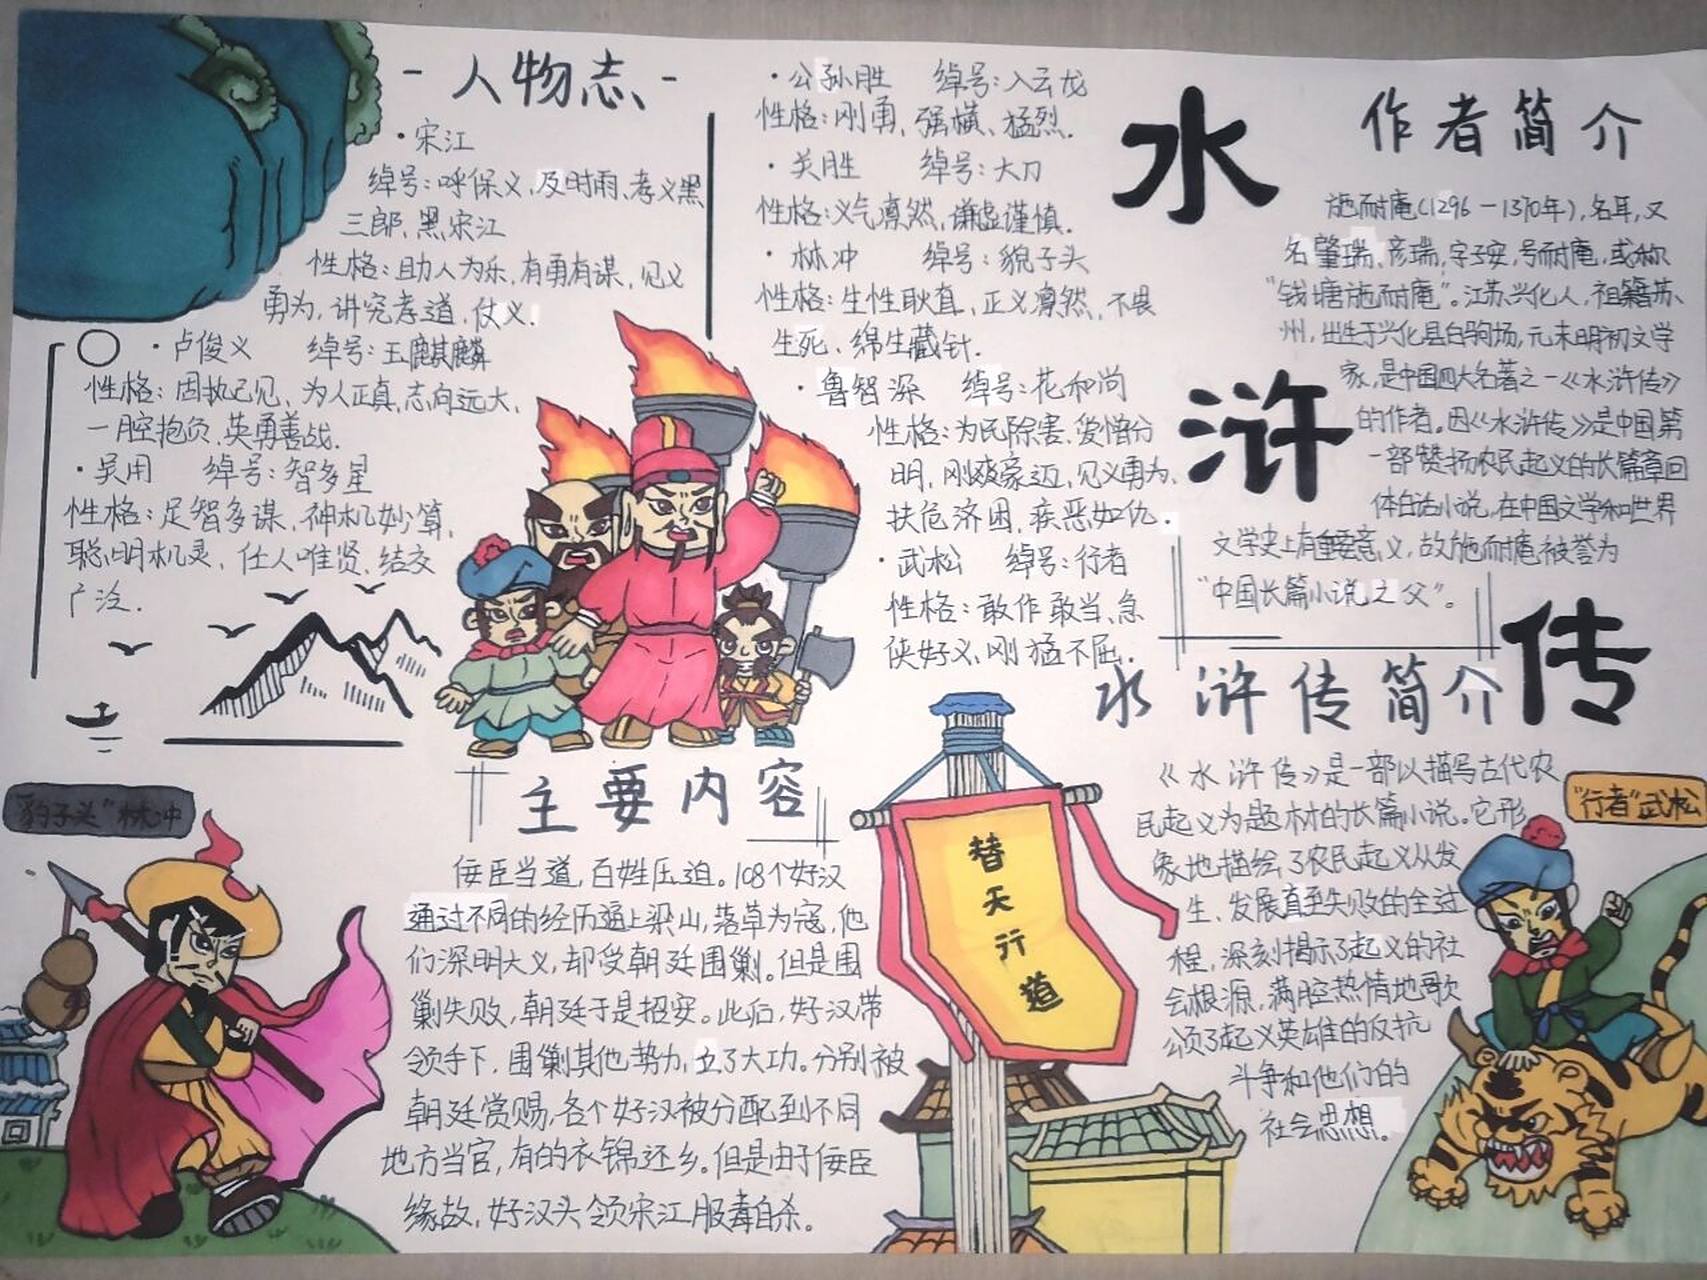 -人物志-
·宋江
绰号:呼保义、及时雨、孝义黑
三郎、黑宋江
性格:助人为乐,有勇有谋,见义
勇为,讲究孝道,仗义.
·卢俊义 绰号:玉麒麟
性格:固执己见、为人正真,志向远大,
一腔抱负,英勇善战.
·吴用 绰号:智多星
性格:足智多谋,神机妙算,
聪明机灵,任人唯贤,结交
广泛.
·公孙胜 绰号:入云龙
性格:刚勇、强横、猛烈.
·关胜 绰号:大刀
性格:义气凛然,谦虚谨慎.
·林冲 绰号:豹子头
性格:生性耿直,正义凛然,不畏
生死、绵里藏针.
·鲁智深 绰号:花和尚
性格:为民除害,爱憎分
明,刚爽豪迈,见义勇为,
扶危济困,疾恶如仇.
·武松 绰号:行者
性格:敢作敢当,急
侠好义,刚猛不屈.
水
浒
传
作者简介
施耐庵(1296—1370年),名耳,又
名肇瑞、彦瑞,字子安,号耐庵,或称
"钱塘施耐庵"。江苏兴化人,祖籍苏
州,出生于兴化县白驹场,元末明初文学
家,是中国四大名著之一《水浒传》
的作者。因《水浒传》是中国第
一部赞扬农民起义的长篇章回
体白话小说,在中国文学和世界
文学史上有重要意义,故施耐庵被誉为
"中国长篇小说之父"。
水浒传简介
《水浒传》是一部以描写古代农
民起义为题材的长篇小说。它形
象地描绘了农民起义从发
生、发展直至失败的全过
程,深刻揭示了起义的社
会根源,满腔热情地歌
颂了起义英雄的反抗
斗争和他们的
社会思想。
"行者"武松
主要内容
佞臣当道,百姓压迫。108个好汉
通过不同的经历逼上梁山,落草为寇,他
们深明大义,却受朝廷围剿。但是围
剿失败,朝廷于是招安。此后,好汉带
领手下,围剿其他势力,立了大功。分别被
朝廷赏赐,各个好汉被分配到不同
地方当官,有的衣锦还乡。但是由于佞臣
缘故,好汉头领宋江服毒自杀。
"豹子头"林冲
替
天
行
道